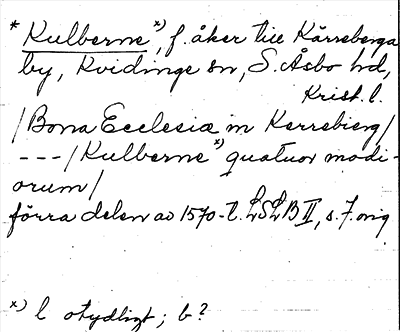 * Kulberne x), f. åker till Kärreberga
by, Kvidinge sn, S. Åsbo hd,
Krist. l.
/Bona Ecclesiæ in Kerrebierg/
---/Kulberne x) quatuor modi-
orum/
förra delen av 1570-t. LSLB II, s. 7. orig
x) l otydligt; b?